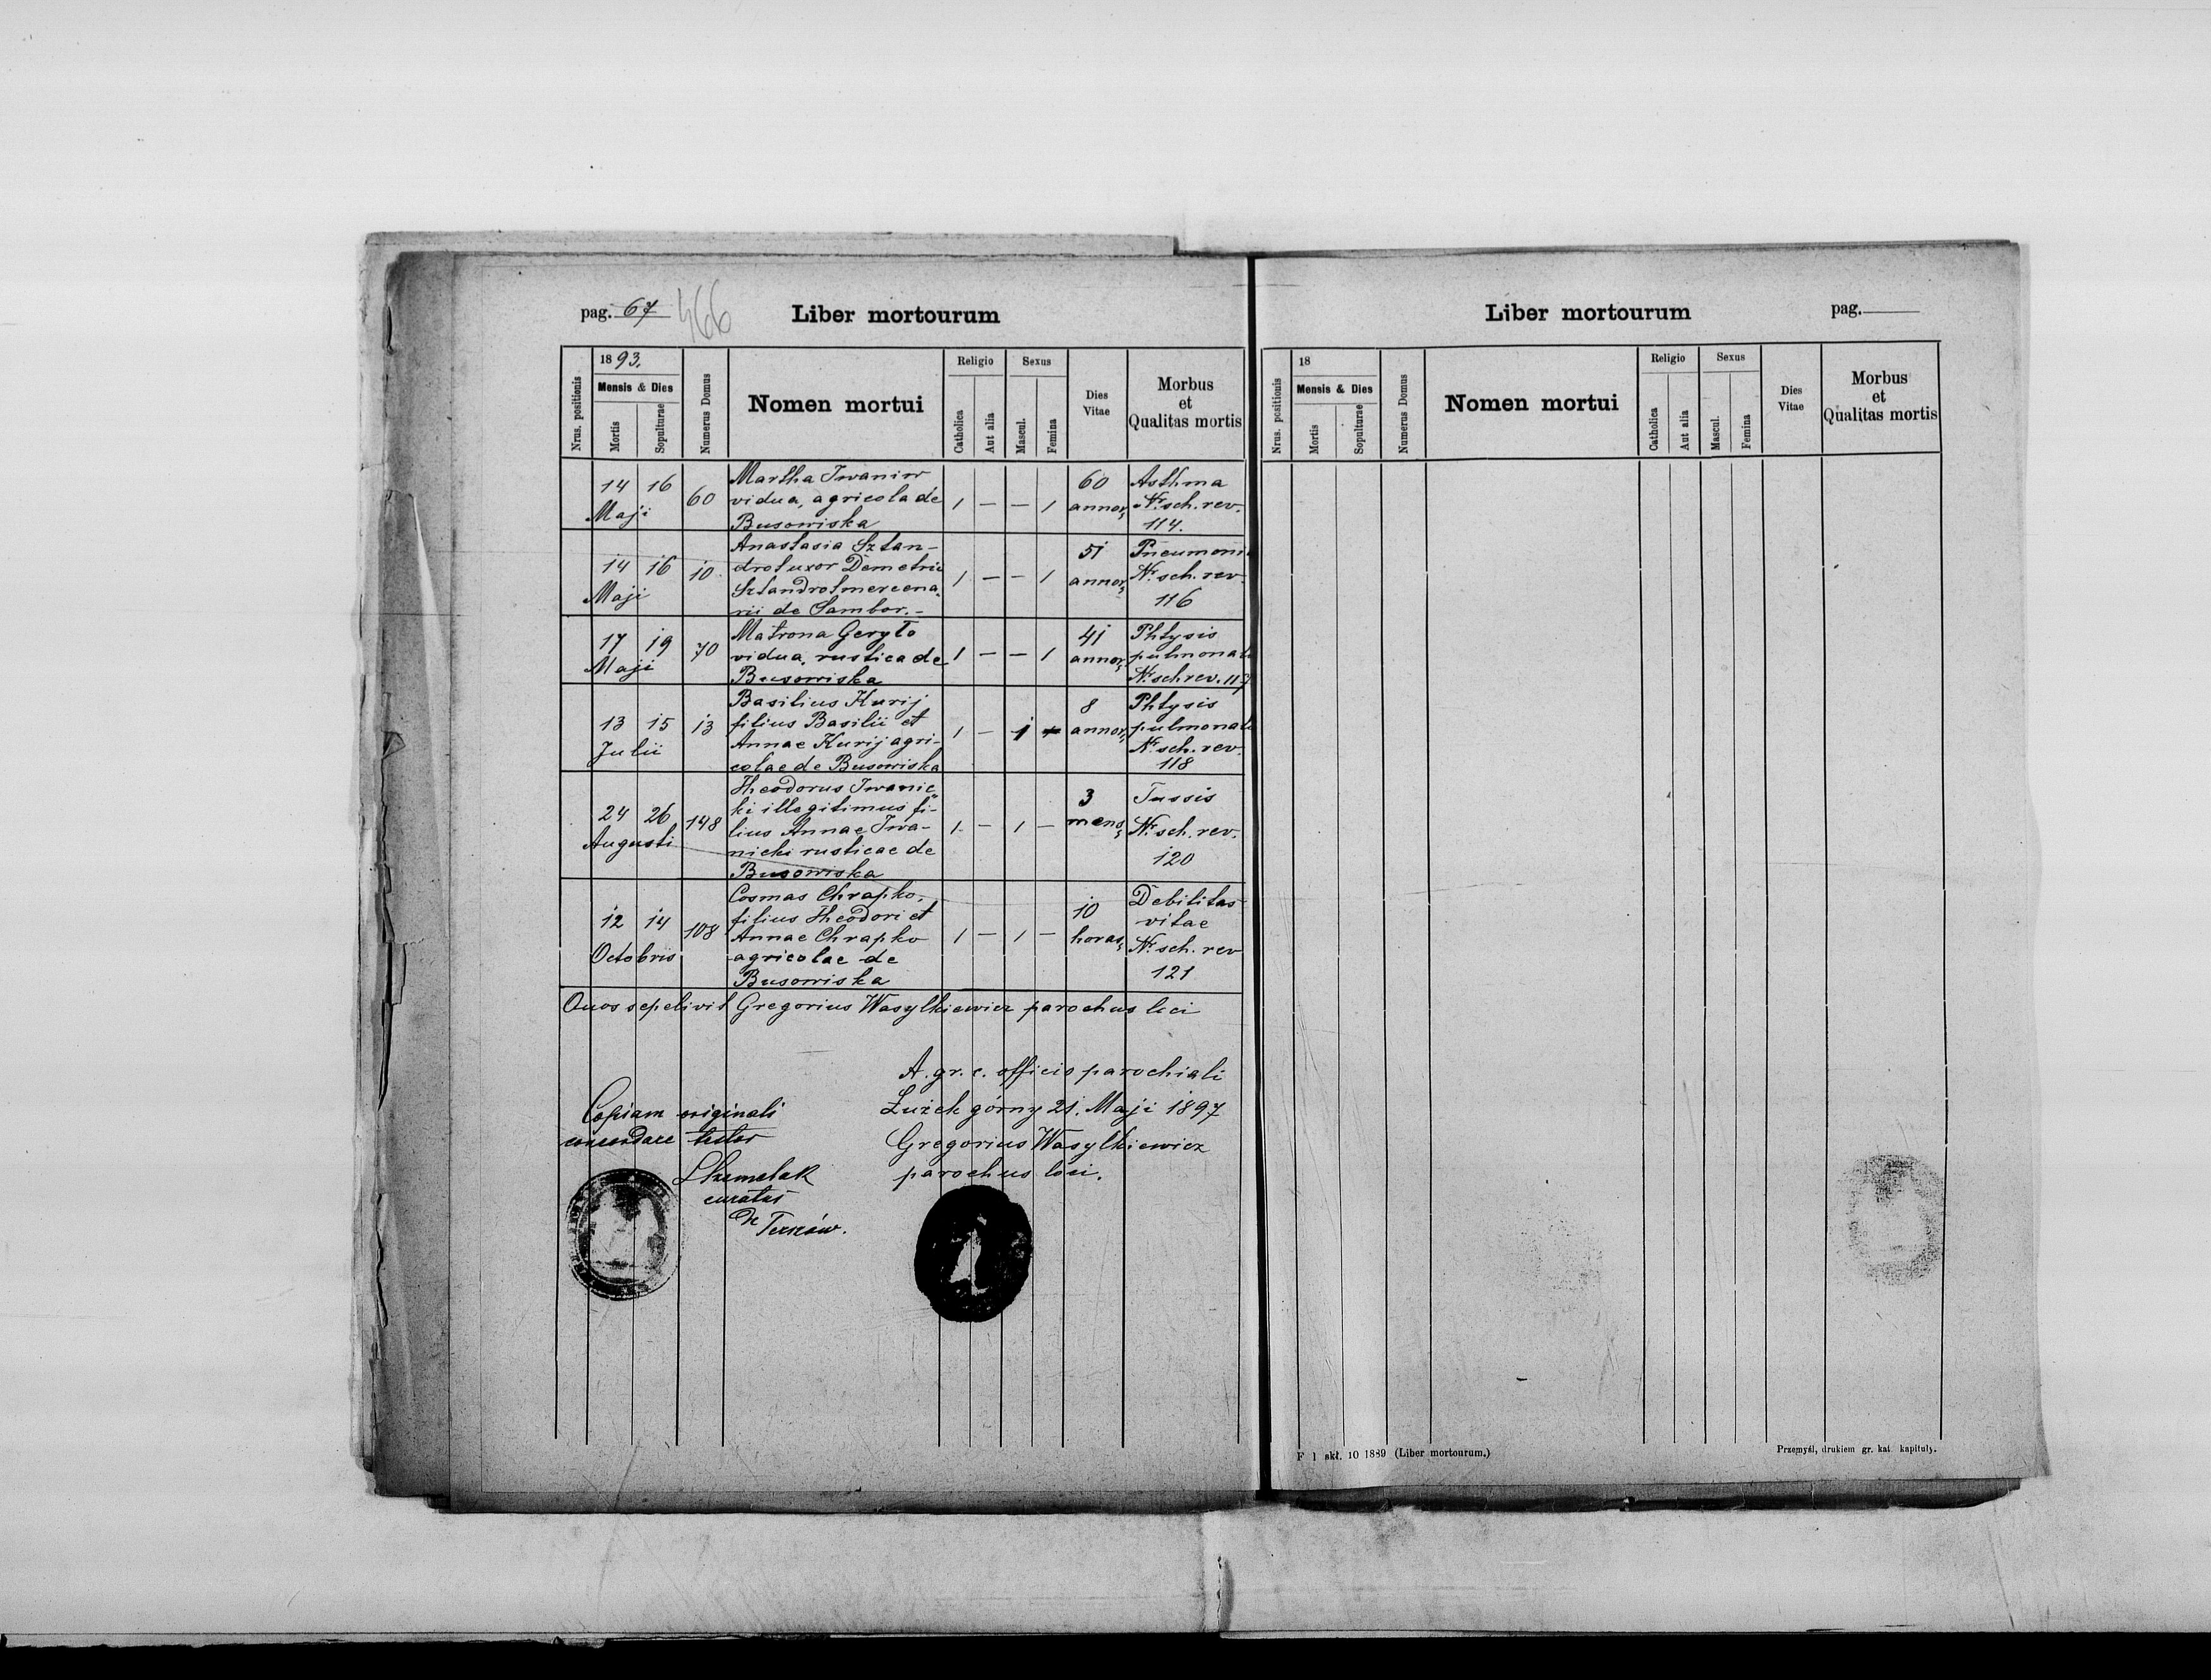 pag. 67 466 Liber mortourum
Nrus. positionis 1893. Mensis & Dies Mortis Sepulturae Numerus Domus Nomen mortui Religio Catholica Aut alia Sexus Mascul. Femina Dies Vitae Morbus et Qualitas mortis
14 16 Maji 60
Martha Iwaniw
vidua, agricola de
Busowiska
1 — — 1
60
annor,
Asthma
Nr. sch. rev.
114.
14 16 Maji 10
Anastasia Sztan-
drot uxor Demetrii
Sztandrot mercena-
rii de Sambor. -
1 — — 1
51
annor,
Pneumoni
Nr. sch. rev
116
17 19 Maji 70
Matrona Geryło
vidua, rustica de
Busowiska
1 — — 1
41
annor,
Phtysis
pulmonal
Nr. sch rev. 117
13 15 Julii 13
Basilius Kurij
filius Basilii et
Annae Kurij agri-
colae de Busowiska
1 — 1
8
annor,
Phtysis
pulmonal
Nr. sch. rev.
118
24 26 Augusti 148
Theodorus Iwanic
ki illegitimus fi-
lius Annae Iwa-
nicki rusticae de
Busowiska
1 — 1 —
3
mens,
Tussis
Nr. sch. rev.
120
12 14 Octobris 108
Cosmas Chrapko,
filius Theodori et
Annae Chrapko
agricolae de
Busowiska
1 — 1 —
10
horas,
Debilitas
vitae
Nr. sch. rev
121
Quos sepelivit Gregorius Wasylkiewicz parochus loci
A. gr. c. officio parochiali
Łużek górny 21. Maji 1897
Gregorius Wasylkiewicz
parochus loci.
Copiam originali
concordare testor
curatus
de Terszów.
Liber mortourum pag.
Nrus. positionis 18 Mensis & Dies Mortis Sepulturae Numerus Domus Nomen mortui Religio Catholica Aut alia Sexus Mascul. Femina Dies Vitae Morbus et Qualitas mortis
F 1 skł. 10 1889 (Liber mortourum.) Przemyśl, drukiem gr. kat. kapituły.